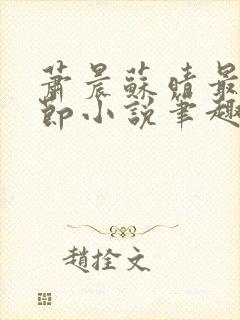 蕭晨蘇晴最
節小說筆趣
趙拴文